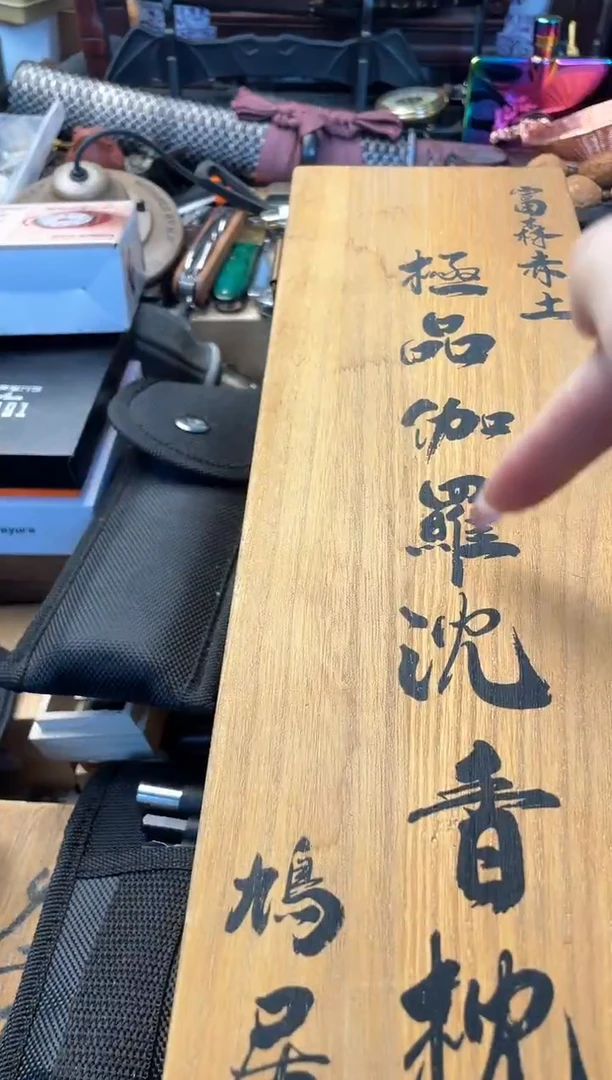 富森赤土
極品伽羅沈香枕
鳩居